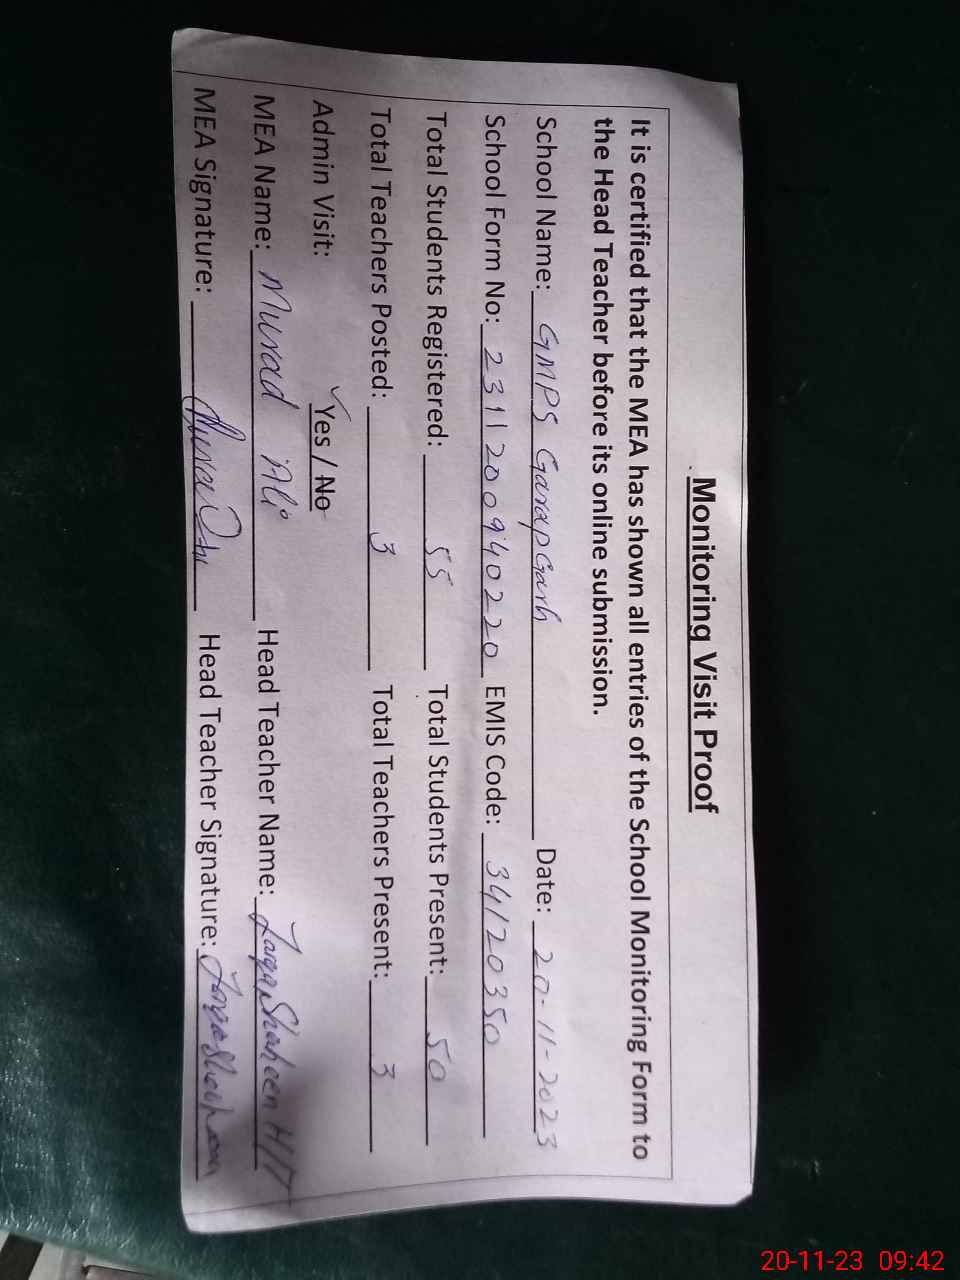 Monitoring Visit Proof
It is certified that the MEA has shown all entries of the School Monitoring Form to
the Head Teacher before its online submission.
School Name: GMPS Garap Garh Date: 20-11-2023
School Form No: 231120094 0220 EMIS Code: 34120350
Total Students Registered: 55 Total Students Present: 50
Total Teachers Posted: 3 Total Teachers Present: 3
Admin Visit: Yes / No
MEA Name: Murad Ali Head Teacher Name: Shaheen H/T
MEA Signature: Head Teacher Signature:
20-11-23 09:42